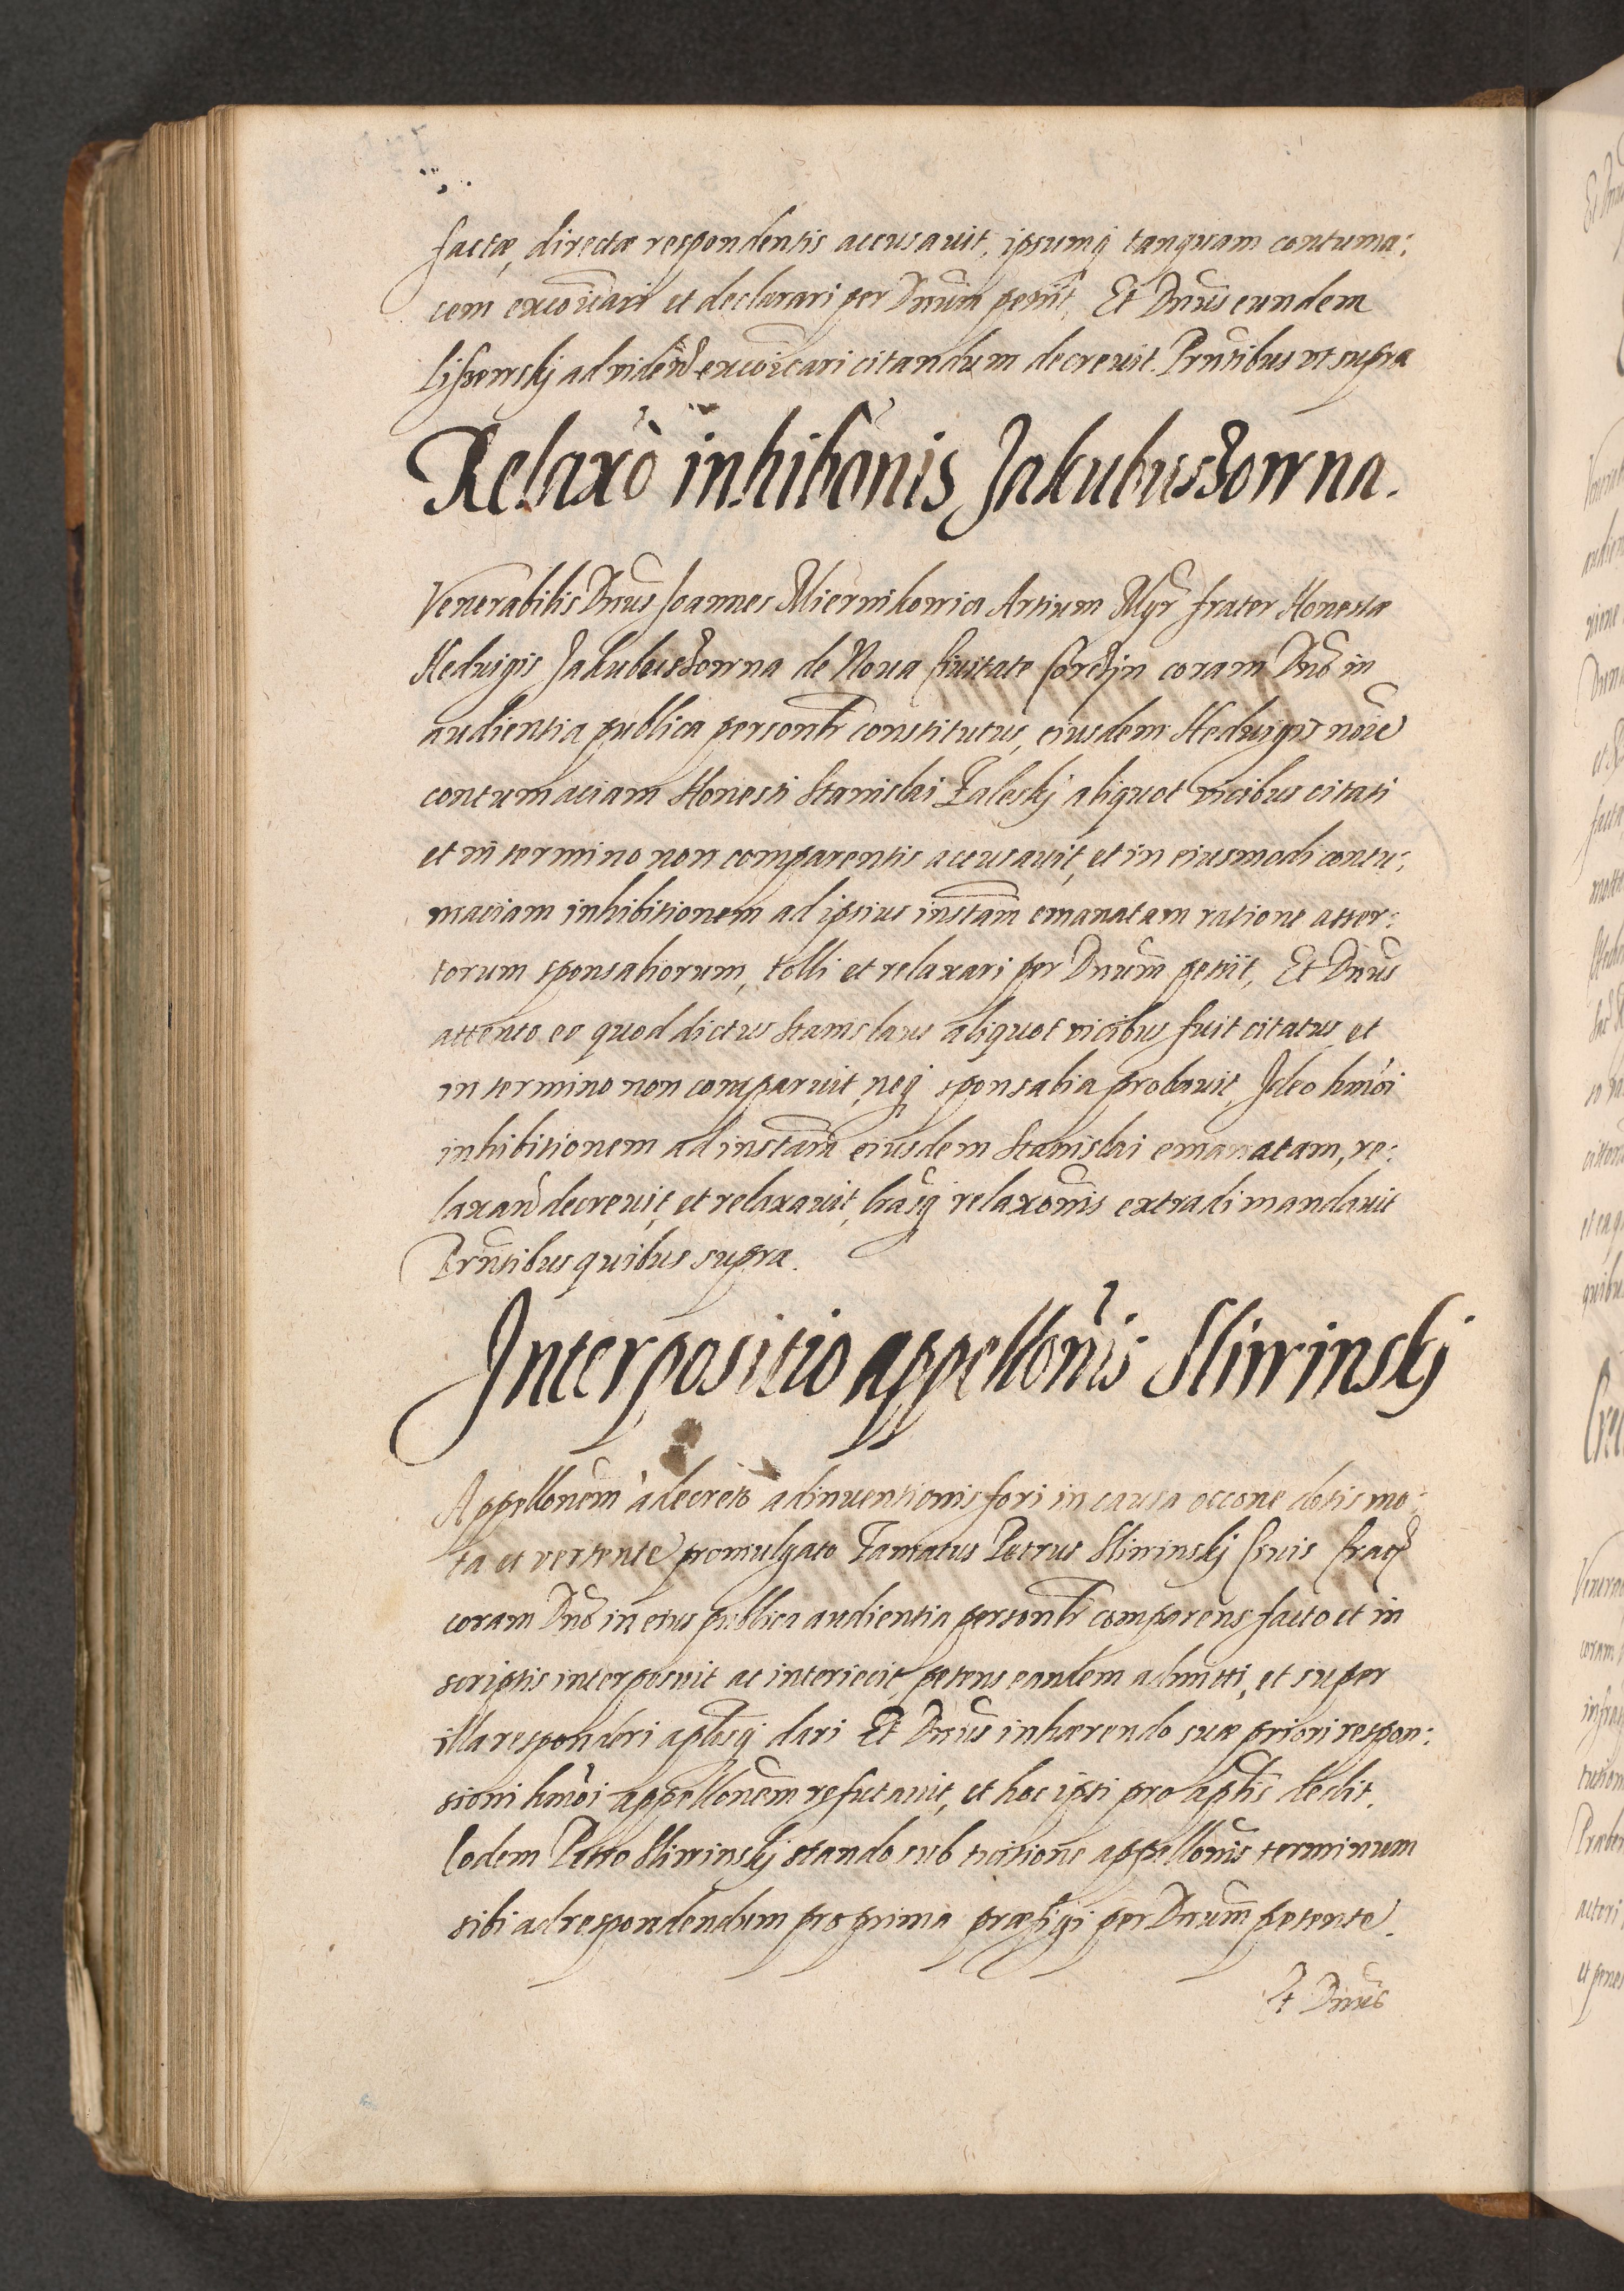 factæ, directæ respondentis accusauit, ipsumq tanquam contuma:
cem excoicari et declarari per Dnum petiit, Et Dnus eundem
Lissewskj ad viden excoicari citandum decreuit. Prntibus vt supra
Relaxo inhibonis Jakubuszowna.
Venerabilis Dnus Joannes Miernikowicz Artium Mgr frater Honestæ
Heduigis Jakubuszowna de Noua Ciuitate Corczjn coram Dno in
audientia publica personlr constitutus, eiusdem Heduigis noie
contumaciam Honesti Stanislai Zaleskj aliquot vicibus citati
et in termino non comparentis accusauit, et in eiusmodi contu:
maciam inhibitionem ad ipsius instam emanatam ratione asser:
torum sponsaliorum, tolli et relaxari per Dnum petiit, Et Dnus
attento eo quod dictus Stanislaus aliquot vicibus fuit citatus, et
in termino non comparuit, neq sponsalia probauit, Ideo hmoi
inhibitionem ad instam eiusdem Stanislai emanatam, re:
laxan decreuit, et relaxauit, lrasq relaxonis extradi mandauit
Prntibus quibus supra.
Interpositio appellonis Sliwinskj
Appellonem a decreto adinuentionis fori in causa occone dotis mo:
ta et vertente promulgato Famatus Petrus Sliwinskj Ciuis Crac
coram Dno in eius publica audientia personlr comparens facto et in
scriptis interposuit ac interiecit, petens eandem admitti, et super
illa responderi aplosq dari Et Dnus inhærendo suæ priori respon:
sioni hmoi appellonem refutauit, et hoc ipsi pro aplis dedit.
Eodem Petro Sliwinskj stando sub ticitione appellonis terminum
sibi ad respondendum pro prima præfigi per Dnum petente.
Et Dnus